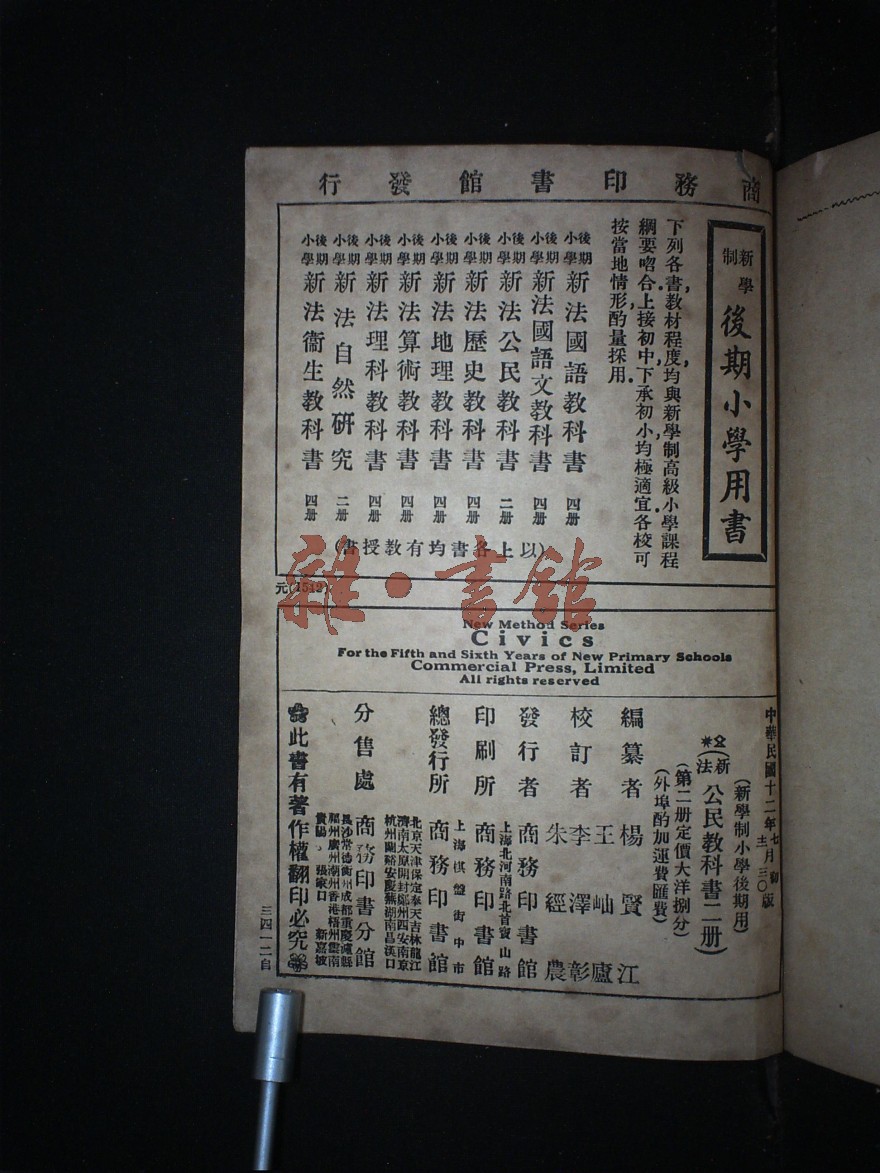 商務印書館發行
新學制 後期小學用書
下列各書教材程度均與新學制高級小學課程
綱要吻合上接初中下承初小均極適宜各校可
按當地情形酌量採用
後期小學 新法國語教科書 四册
後期小學 新法國語文教科書 四册
後期小學 新法公民教科書 二册
後期小學 新法歷史教科書 四册
後期小學 新法地理教科書 四册
後期小學 新法算術教科書 四册
後期小學 新法理科教科書 四册
後期小學 新法自然研究 二册
後期小學 新法衞生教科書 四册
(以上各書均有教授書)
雜·書館
New Method Series
Civics
For the Fifth and Sixth Years of New Primary Schools
Commercial Press, Limited
All rights reserved
中華民國十二年七月
三〇版
(新學制小學後期用)
(新法 公民教科書二册)
(第二册定價大洋捌分)
(外埠酌加運費匯費)
編纂者 楊賢江
王岫廬
校訂者 李澤彰
朱經農
發行者 商務印書館
上海北河南路北首寶山路
印刷所 商務印書館
上海棋盤街中市
總發行所 商務印書館
北京天津保定奉天吉林龍江
濟南太原開封鄭州西安南京
杭州蘭谿安慶蕪湖南昌漢口
分售處 商務印書分館
長沙常德衡州成都重慶瀘縣
福州廣州潮州香港梧州雲南
貴陽 張家口 新嘉坡
此書有著作權翻印必究
三四一二自